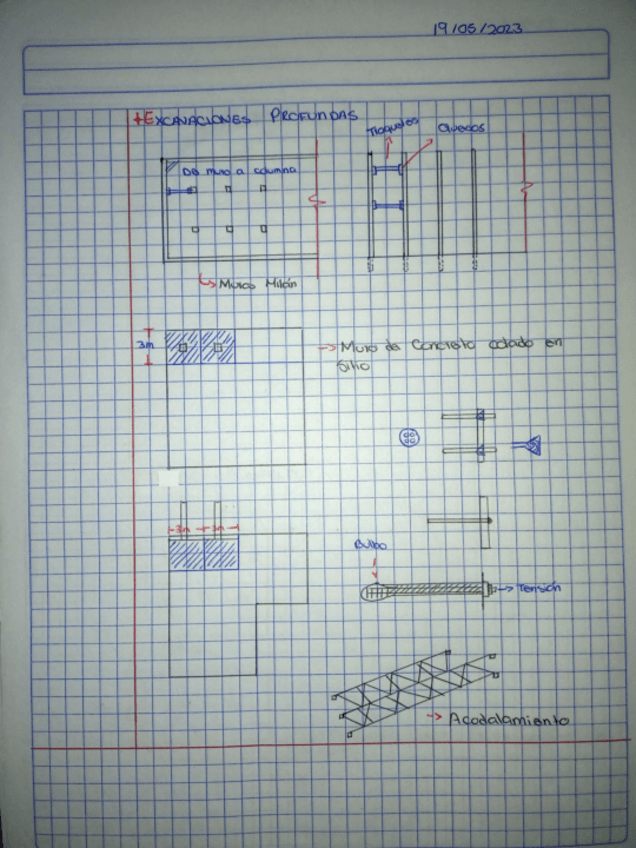 19/05/2023
+ EXCAVACIONES PROFUNDAS
Troqueles
De muro a columna
Muros Milán
3m
Muro de Concreto colado en
Sitio
3m 3m
Bulbo
Tensión
Acodalamiento